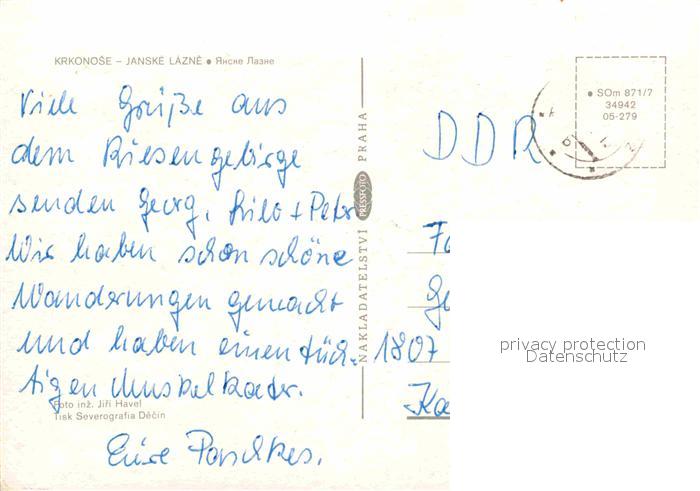 KRKONOŠE – JANSKÉ LÁZNĚ ● Янске Лазне
Viele Grüße aus
dem Riesengebirge
senden Georg, + Peter
Wir haben schon schöne
Wanderungen gemacht
und haben einen tüch-
tigen Muskelkater.
Eure
Foto inž. Jiří Havel
Tisk Severografia Děčín
NAKLADATELSTVÍ PRESSFOTO PRAHA
● SOm 871/7
34942
05-279
DDR
1807
privacy protection
Datenschutz